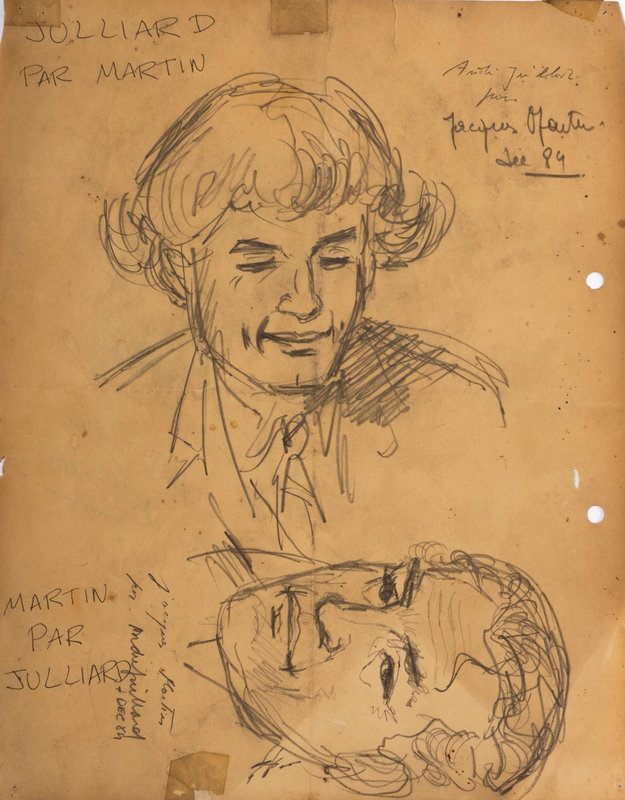 JULLIARD
PAR MARTIN
André Juillard
par
Jacques Martin
Dec 84
MARTIN
PAR
JULLIARD
Jacques Martin
par André Juillard
7 DEC 84